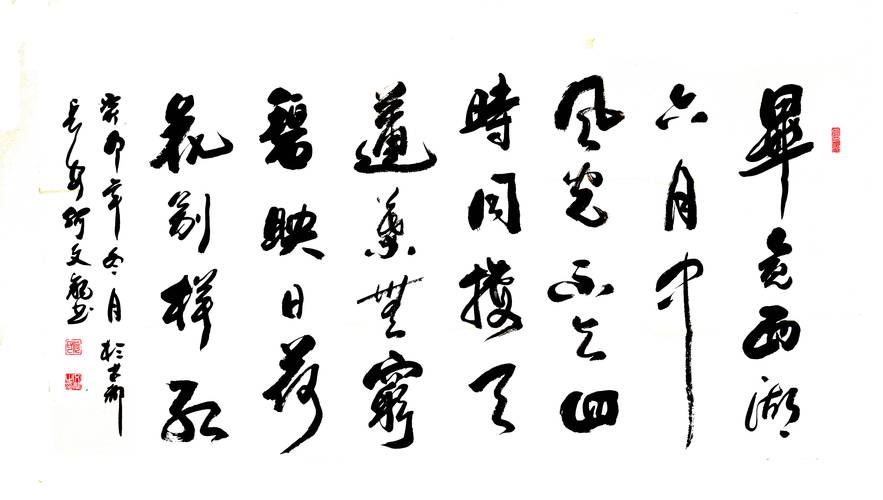 畢竟西湖
六月中
風光不与四
時同接天
蓮葉無窮
碧映日荷
花別樣红
癸卯年冬月於古都
长安文龍书